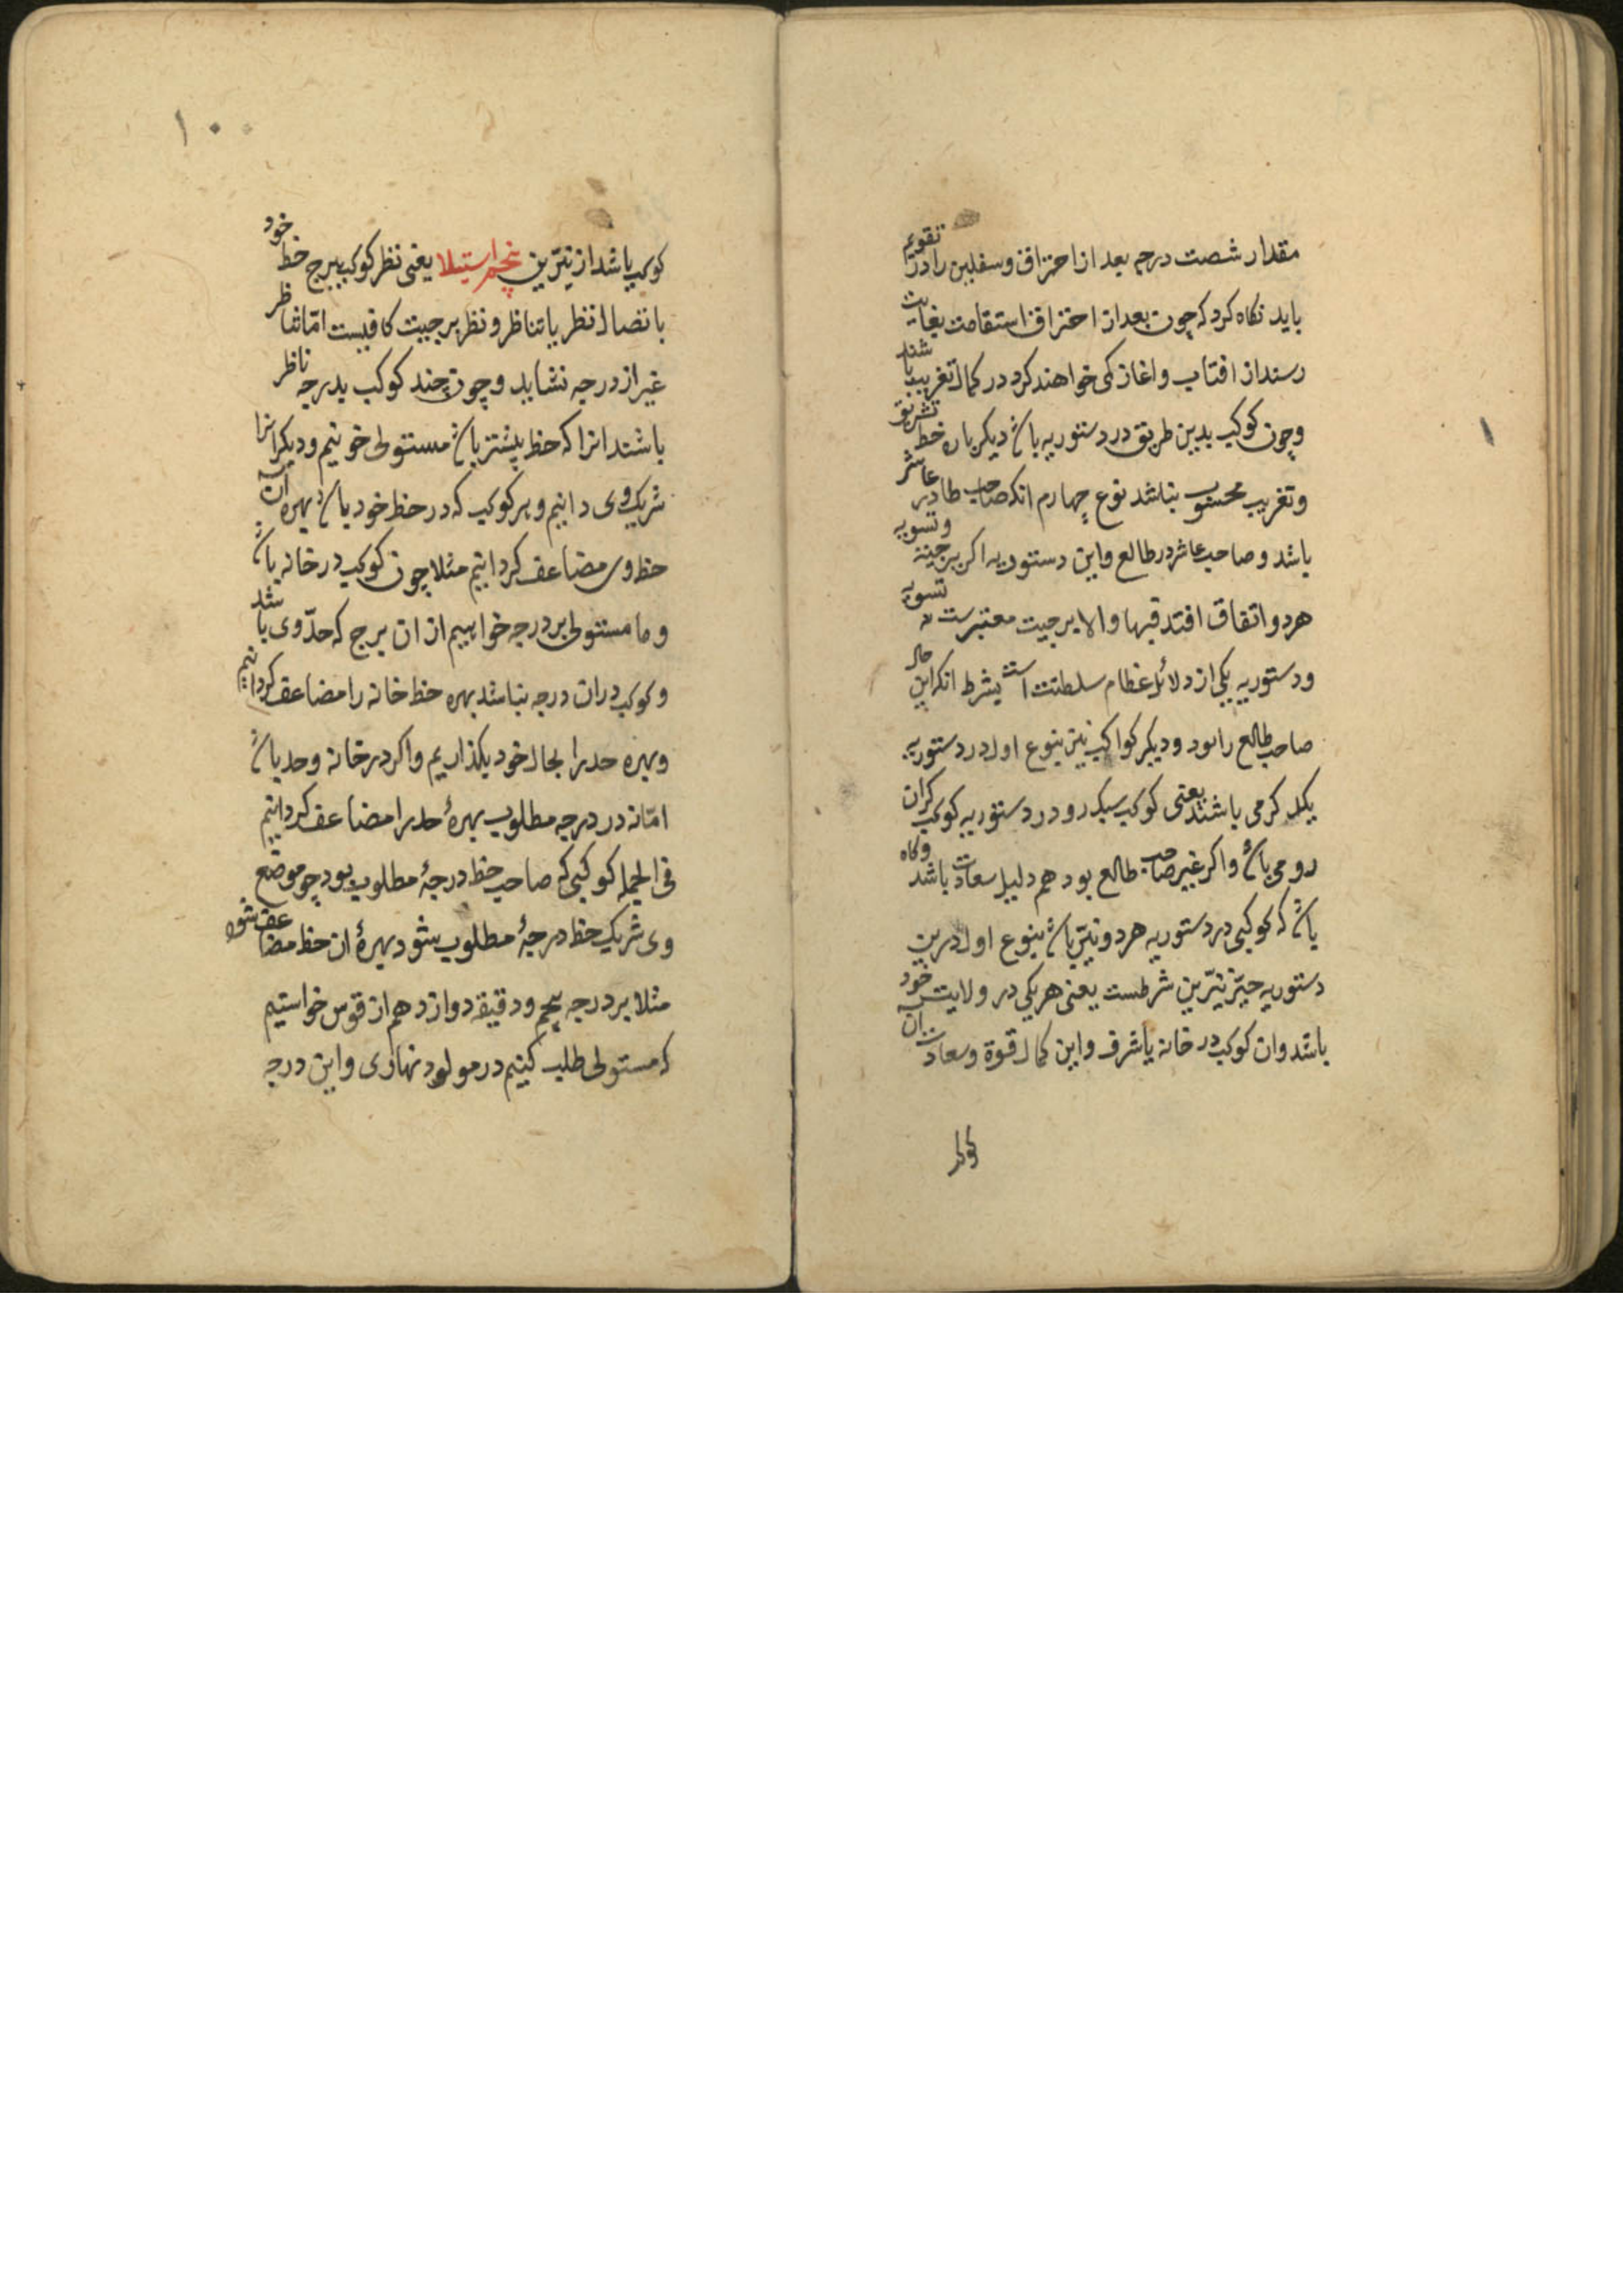 مقدار شصت درجه بعد از احتراق و سفلیین را در تقویم
باید نکاه کرد که چون بعد از احتراق استقامت بغایت
رسند از افتاب و اغاز کمی خواهند کرد در کمال تغریب باشند
و چون کوکب بدین طریق در دستوریه باشد دیکر باره حظ تشریق
و تغریب محسوب نباشد نوع چهارم انکه صاحب طالع در عاشر
باشد و صاحب عاشر در طالع و این دستوریه اکر برجیته و تسویه
هر دو اتفاق افتد فبها و الا برجیت معتبرست نه تسویه
و دستوریه یکی از دلائل عظام سلطنت است بشرط انکه این حال
صاحب طالع را بود و دیکر کواکب نیز بنوع اول در دستوریه
یکدکر می باشند یعنی کوکب سبک رو در دستوریه کوکب کران
رو می باشد و اکر غیر صاحب طالع بود هم دلیل سعادت باشد و کاه
باشد که کوکبی در دستوریه هر دو نیّر باشد بنوع اول درین
دستوریه حیّز نیّرین شرطست یعنی هر یکی در ولایت خود
باشد و ان کوکب در خانه یا شرف و این کمال قوة و سعادت آن
کوکب
۱۰۰
کوکب باشد از نیّرین پنجم استیلا یعنی نظر کوکب ببرج حظ خود
باتصال نظر یا تناظر و نظر برجیت کافیست امّا تناظر
غیر از درجه نشاید و چون چند کوکب بدرجه ناظر
باشند انرا که حظ بیشتر باشد مستولی خوانیم و دیکرانرا
شریک وی دانیم و هر کوکب که در حظ خود باشد بهره آن
حظ وی مضاعف کردانیم مثلا چون کوکب در خانه باشد
و ما مستولی بر درجه خواهیم از ان برج که حدّ وی باشد
و کوکب در ان درجه نباشد بهره حظ خانه را مضاعف کردانیم
و بهره حد را بحال خود بکذاریم و اکر در خانه و حد باشد
امّا نه در درجه مطلوب بهرۀ حد را مضاعف کردانیم
فی الجمله کوکبی که صاحب حظ درجۀ مطلوب بود چو موضع
وی شریک حظ درجۀ مطلوب شود بهرۀ ان حظ مضاعف شود
مثلا بر درجه پنجم و دقیقه دوازدهم از قوس خواستیم
که مستولی طلب کنیم در مولود نهاری و این درجه